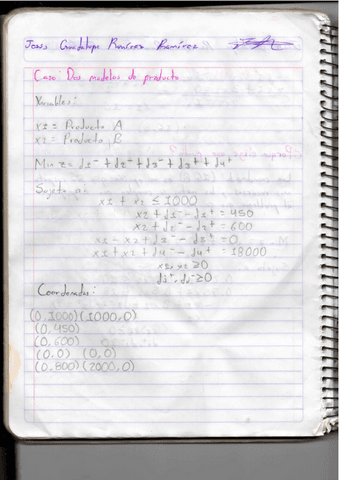 Jesus Guadalupe Ramirez Ramirez
Caso: Dos modelos de producto
Variables:
x1 = Producto A
x2 = Producto B
Min z = d1⁻ + d2⁻ + d3⁻ + d3⁺ + d4⁺
Sujeto a:
x1 + x2 ≤ 1000
x2 + d1⁻ - d1⁺ = 450
x2 + d2⁻ - d2⁺ = 600
x1 - x2 + d3⁻ - d3⁺ = 0
x1 + x2 + d4⁻ - d4⁺ = 18000
≥0
≥0
Coordenadas:
(0,1000)(1000,0)
(0,450)
(0,600)
(0,0) (0,0)
(0,800)(2000,0)